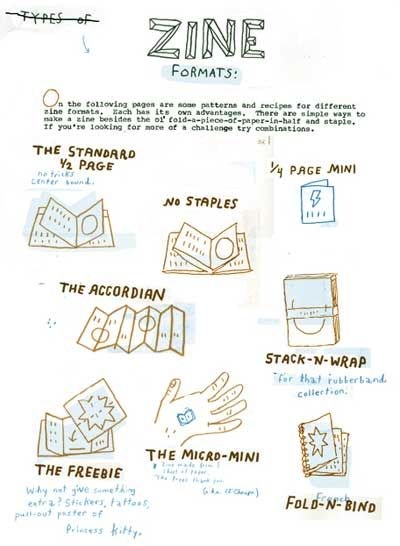 TYPES OF
ZINE
FORMATS:
On the following pages are some patterns and recipes for different
zine formats. Each has its own advantages. There are simple ways to
make a zine besides the ol' fold-a-piece-of-paper-in-half and staple.
If you're looking for more of a challenge try combinations.
THE STANDARD
1/2 PAGE
no tricks
center bound.
NO STAPLES
1/4 PAGE MINI
THE ACCORDIAN
STACK-N-WRAP
for that rubberband
collection.
THE FREEBIE
Why not give something
extra? Stickers, tattoos,
pull-out poster of
Princess Kitty.
THE MICRO-MINI
Zine made from 1
sheet of paper.
The trees thank you.
(a.k.a. Cheap)
French
FOLD-N-BIND